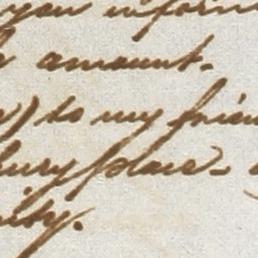 you inform
amount.
) to my frien
bury place -
ity.